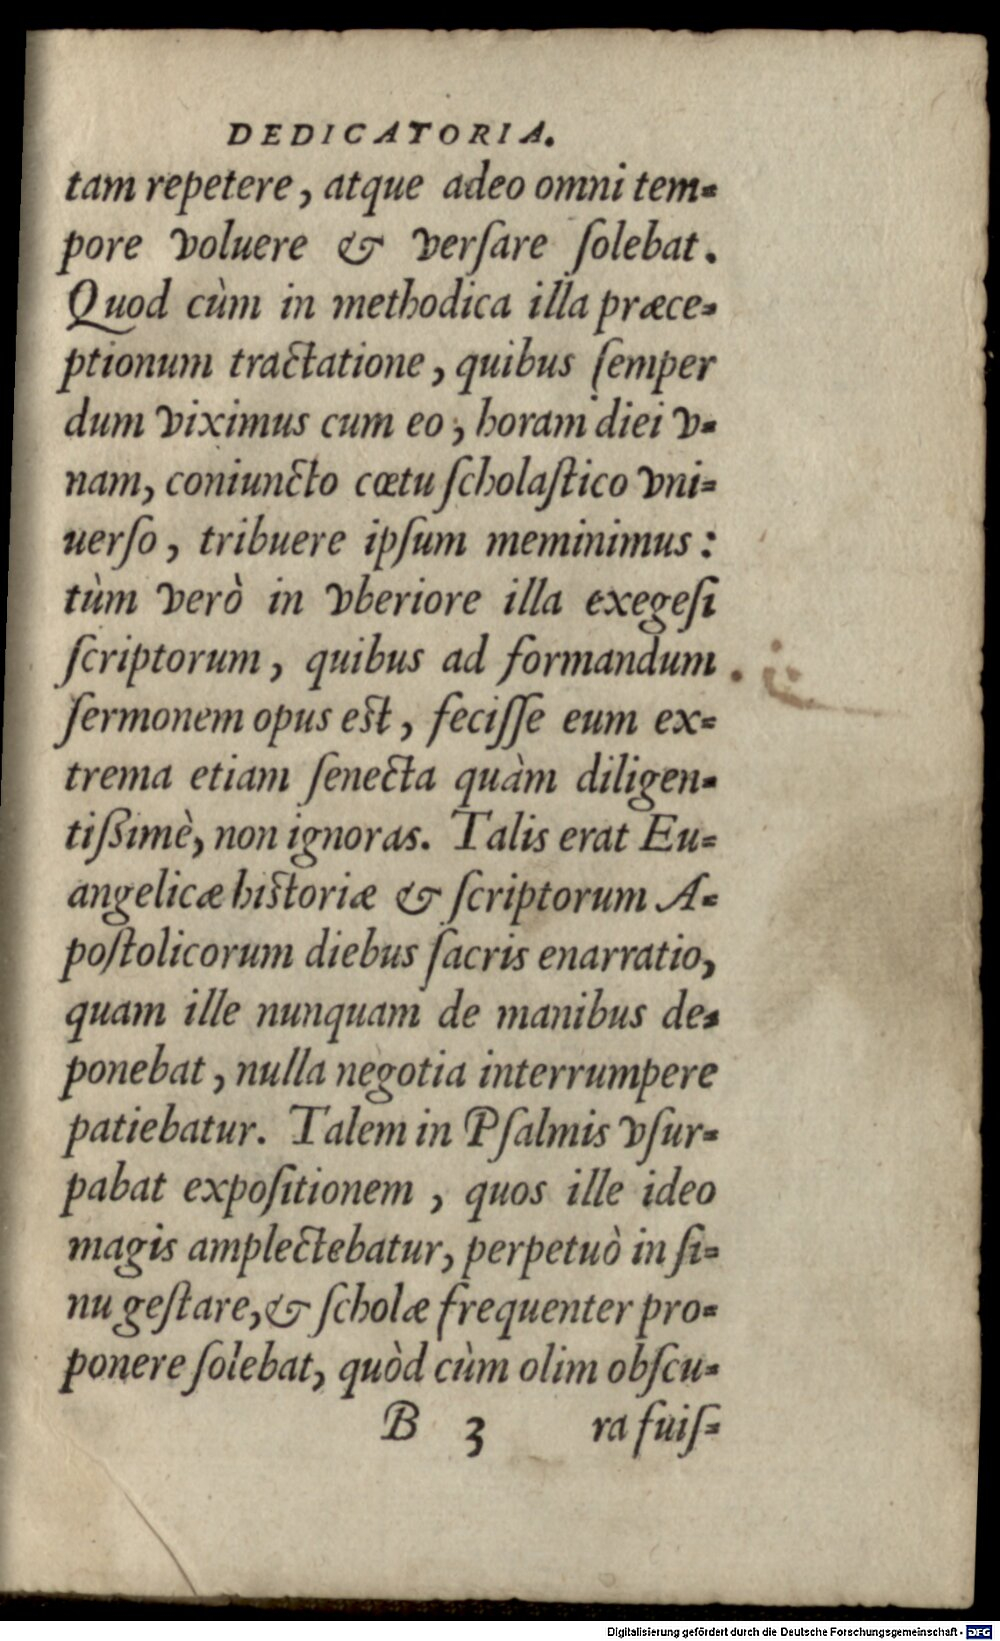 DEDICATORIA.
tam repetere, atque adeo omni tem-
pore voluere & verſare ſolebat.
Quod cùm in methodica illa præce-
ptionum tractatione, quibus ſemper
dum viximus cum eo, horam diei v-
nam, coniuncto cœtu ſcholaſtico vni-
uerſo, tribuere ipſum meminimus:
tùm verò in vberiore illa exegeſi
ſcriptorum, quibus ad formandum
ſermonem opus eſt, feciſſe eum ex-
trema etiam ſenecta quàm diligen-
tißimè, non ignoras. Talis erat Eu-
angelicæ hiſtoriæ & ſcriptorum A-
poſtolicorum diebus ſacris enarratio,
quam ille nunquam de manibus de-
ponebat, nulla negotia interrumpere
patiebatur. Talem in Pſalmis vſur-
pabat expoſitionem, quos ille ideo
magis amplectebatur, perpetuò in ſi-
nu geſtare, & ſcholæ frequenter pro-
ponere ſolebat, quòd cùm olim obſcu-
B 3 ra fuiſ-
Digitalisierung gefördert durch die Deutsche Forschungsgemeinschaft - DFG